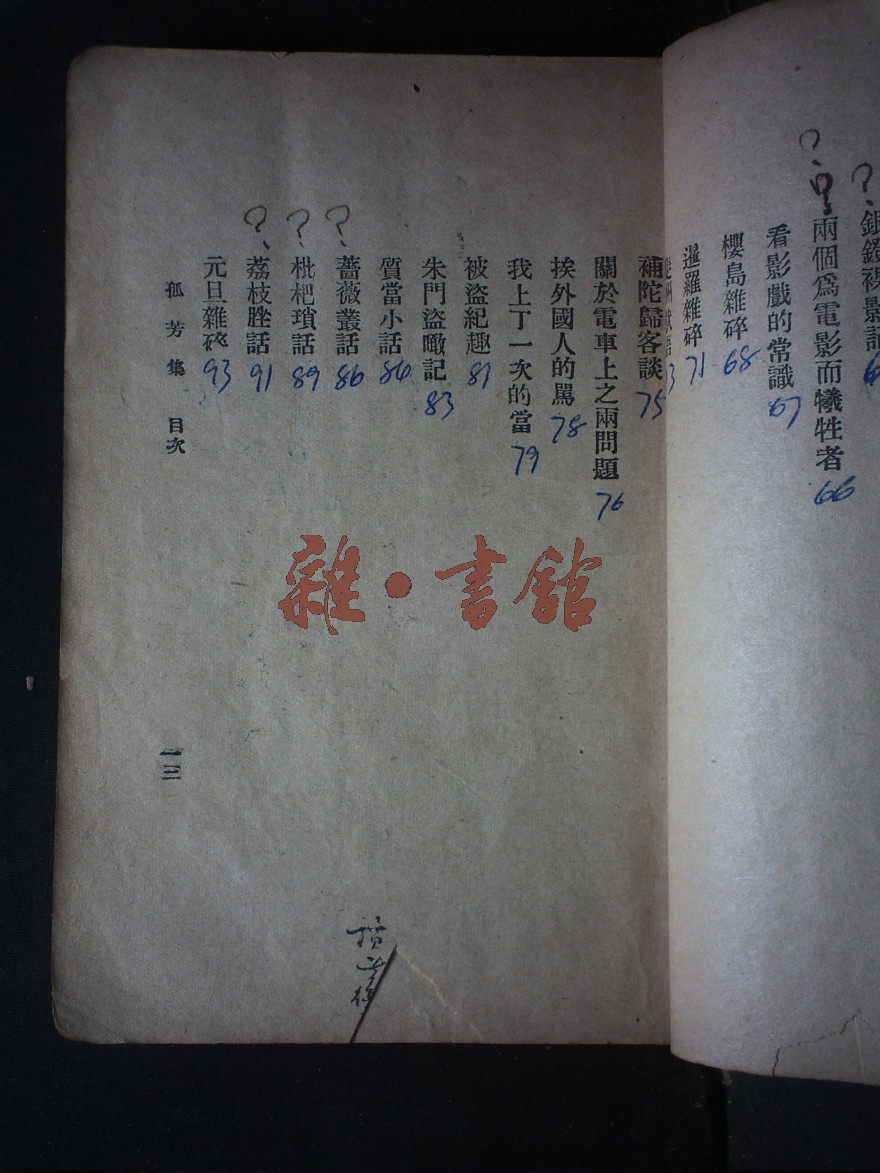 兩個爲電影而犧牲者 66
看影戲的常識 67
櫻島雜碎 68
暹羅雜碎 71
補陀歸客談 75
關於電車上之兩問題 76
挨外國人的罵 78
我上了一次的當 79
被盜紀趣 81
朱門盜瞰記 83
質當小話 86
?、薔薇叢話 86
?、枇杷瑣話 89
?、荔枝脞話 91
元旦雜碎 93
孤芳集 目次
一三
雜·書館